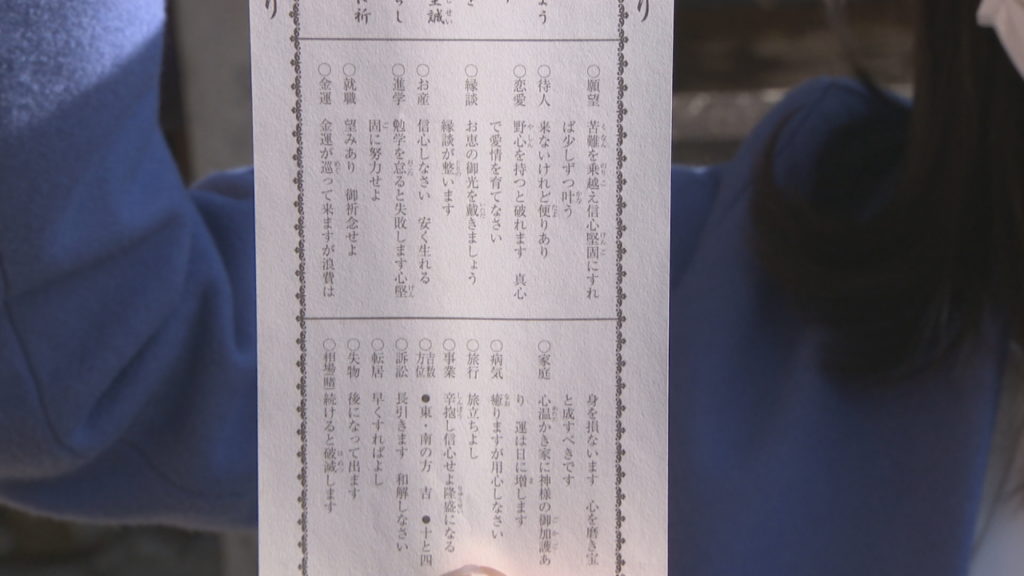 り
り
よう
す
を
至誠
らし
に祈
○願望 苦難を乗越え信心堅固にすれ
ば少しずつ叶う
○待人 来ないけれど便りあり
○恋愛 野心を持つと破れます 真心
で愛情を育てなさい
○縁談 お恵の御光を戴きましょう
縁談が整います
○お産 信心しなさい 安く生れる
○進学 勉学を怠ると失敗します心堅
固に努力せよ
○就職 望みあり 御祈念せよ
○金運 金運が巡って来ますが浪費は
身を損ないます 心を磨き宝
と成すべきです
○家庭 心温かき家に神様の御加護あ
り 運は日に増します
○病気 癒りますが用心しなさい
○旅行 旅立ちよし
○事業 辛抱し信心せよ隆盛になる
○吉数方位 ●東・南の方 吉 ●十と四
○訴訟 長引きます 和解しなさい
○転居 早くすればよし
○失物 後になって出ます
○相場(賭) 続けると破滅します